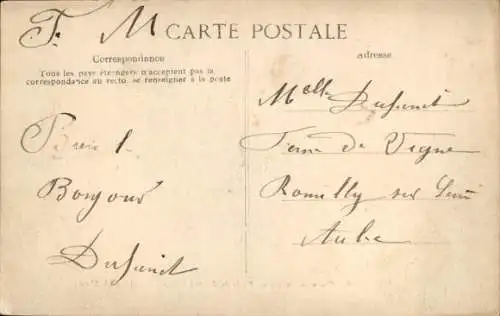 F. M
CARTE POSTALE
Correspondance
Tous les pays étrangers n'acceptent pas la
correspondance au recto. se renseigner à la poste
Bonjour
adresse
Melle
de Vigne
Romilly sur Seine
Aube